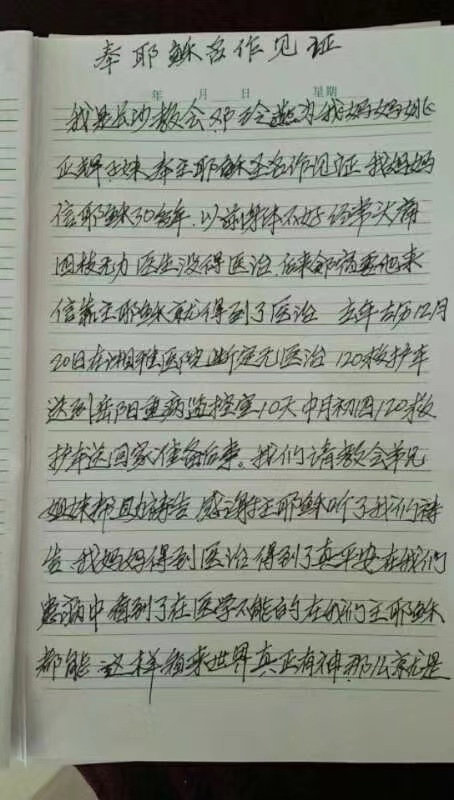 奉耶稣名作见证
年 月 日 星期
我是长沙教会邓 为我妈妈姚
正辉姊妹奉主耶稣圣名作见证 我妈妈
信耶稣30多年.以前身体不好经常头痛
四肢无力医生没得医治.后来 他来
信靠主耶稣就得到了医治 去年古历12月
20日在湘雅医院断定无医治 120救护车
送到岳阳重病监控室10天中月初四120救
护车送回家准备后事。我们请教会弟兄
姐妹帮助祷告 感谢主耶稣听了我们祷
告 我妈妈得到医治得到了真平安在我们
患病中看到了在医学不能的在我们主耶稣
都能 这样看来世界真正有神.那么就是